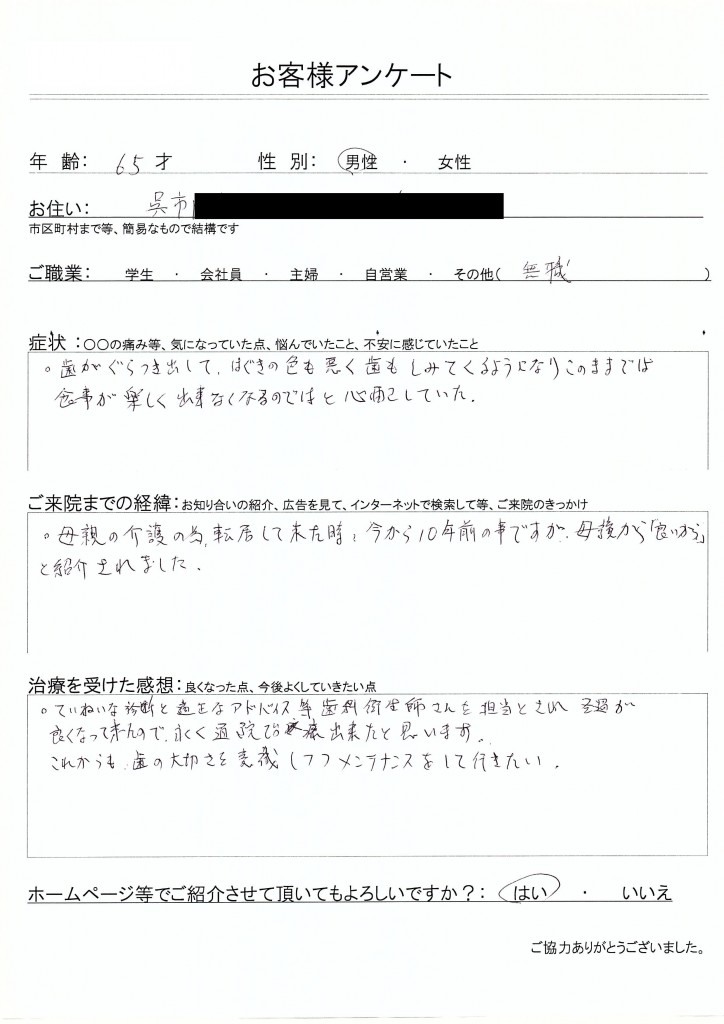 お客様アンケート
年 齢： 65才 性 別： 男性 ・ 女性
お住い： 呉市
市区町村まで等、簡易なもので結構です
ご職業： 学生 ・ 会社員 ・ 主婦 ・ 自営業 ・ その他( 無職 )
症状 ：〇〇の痛み等、気になっていた点、悩んでいたこと、不安に感じていたこと
。歯がぐらつき出して、はぐきの色も悪く歯もしみてくるようになりこのままでは
食事が楽しく出来なくなるのではと心配していた.
ご来院までの経緯：お知り合いの紹介、広告を見て、インターネットで検索して等、ご来院のきっかけ
。母親の介護の為、転居して来た時、今から10年前の事ですが、母親から「良いから」
と紹介されました.
治療を受けた感想：良くなった点、今後よくしていきたい点
。ていねいな診断と適正なアドバイス等歯科衛生師さんを担当とされ が
良くなって来んので、永く通院 出来たと思います。
これからも、歯の大切さを意識しつつメンテナンスをして行きたい.
ホームページ等でご紹介させて頂いてもよろしいですか？： はい ・ いいえ
ご協力ありがとうございました。